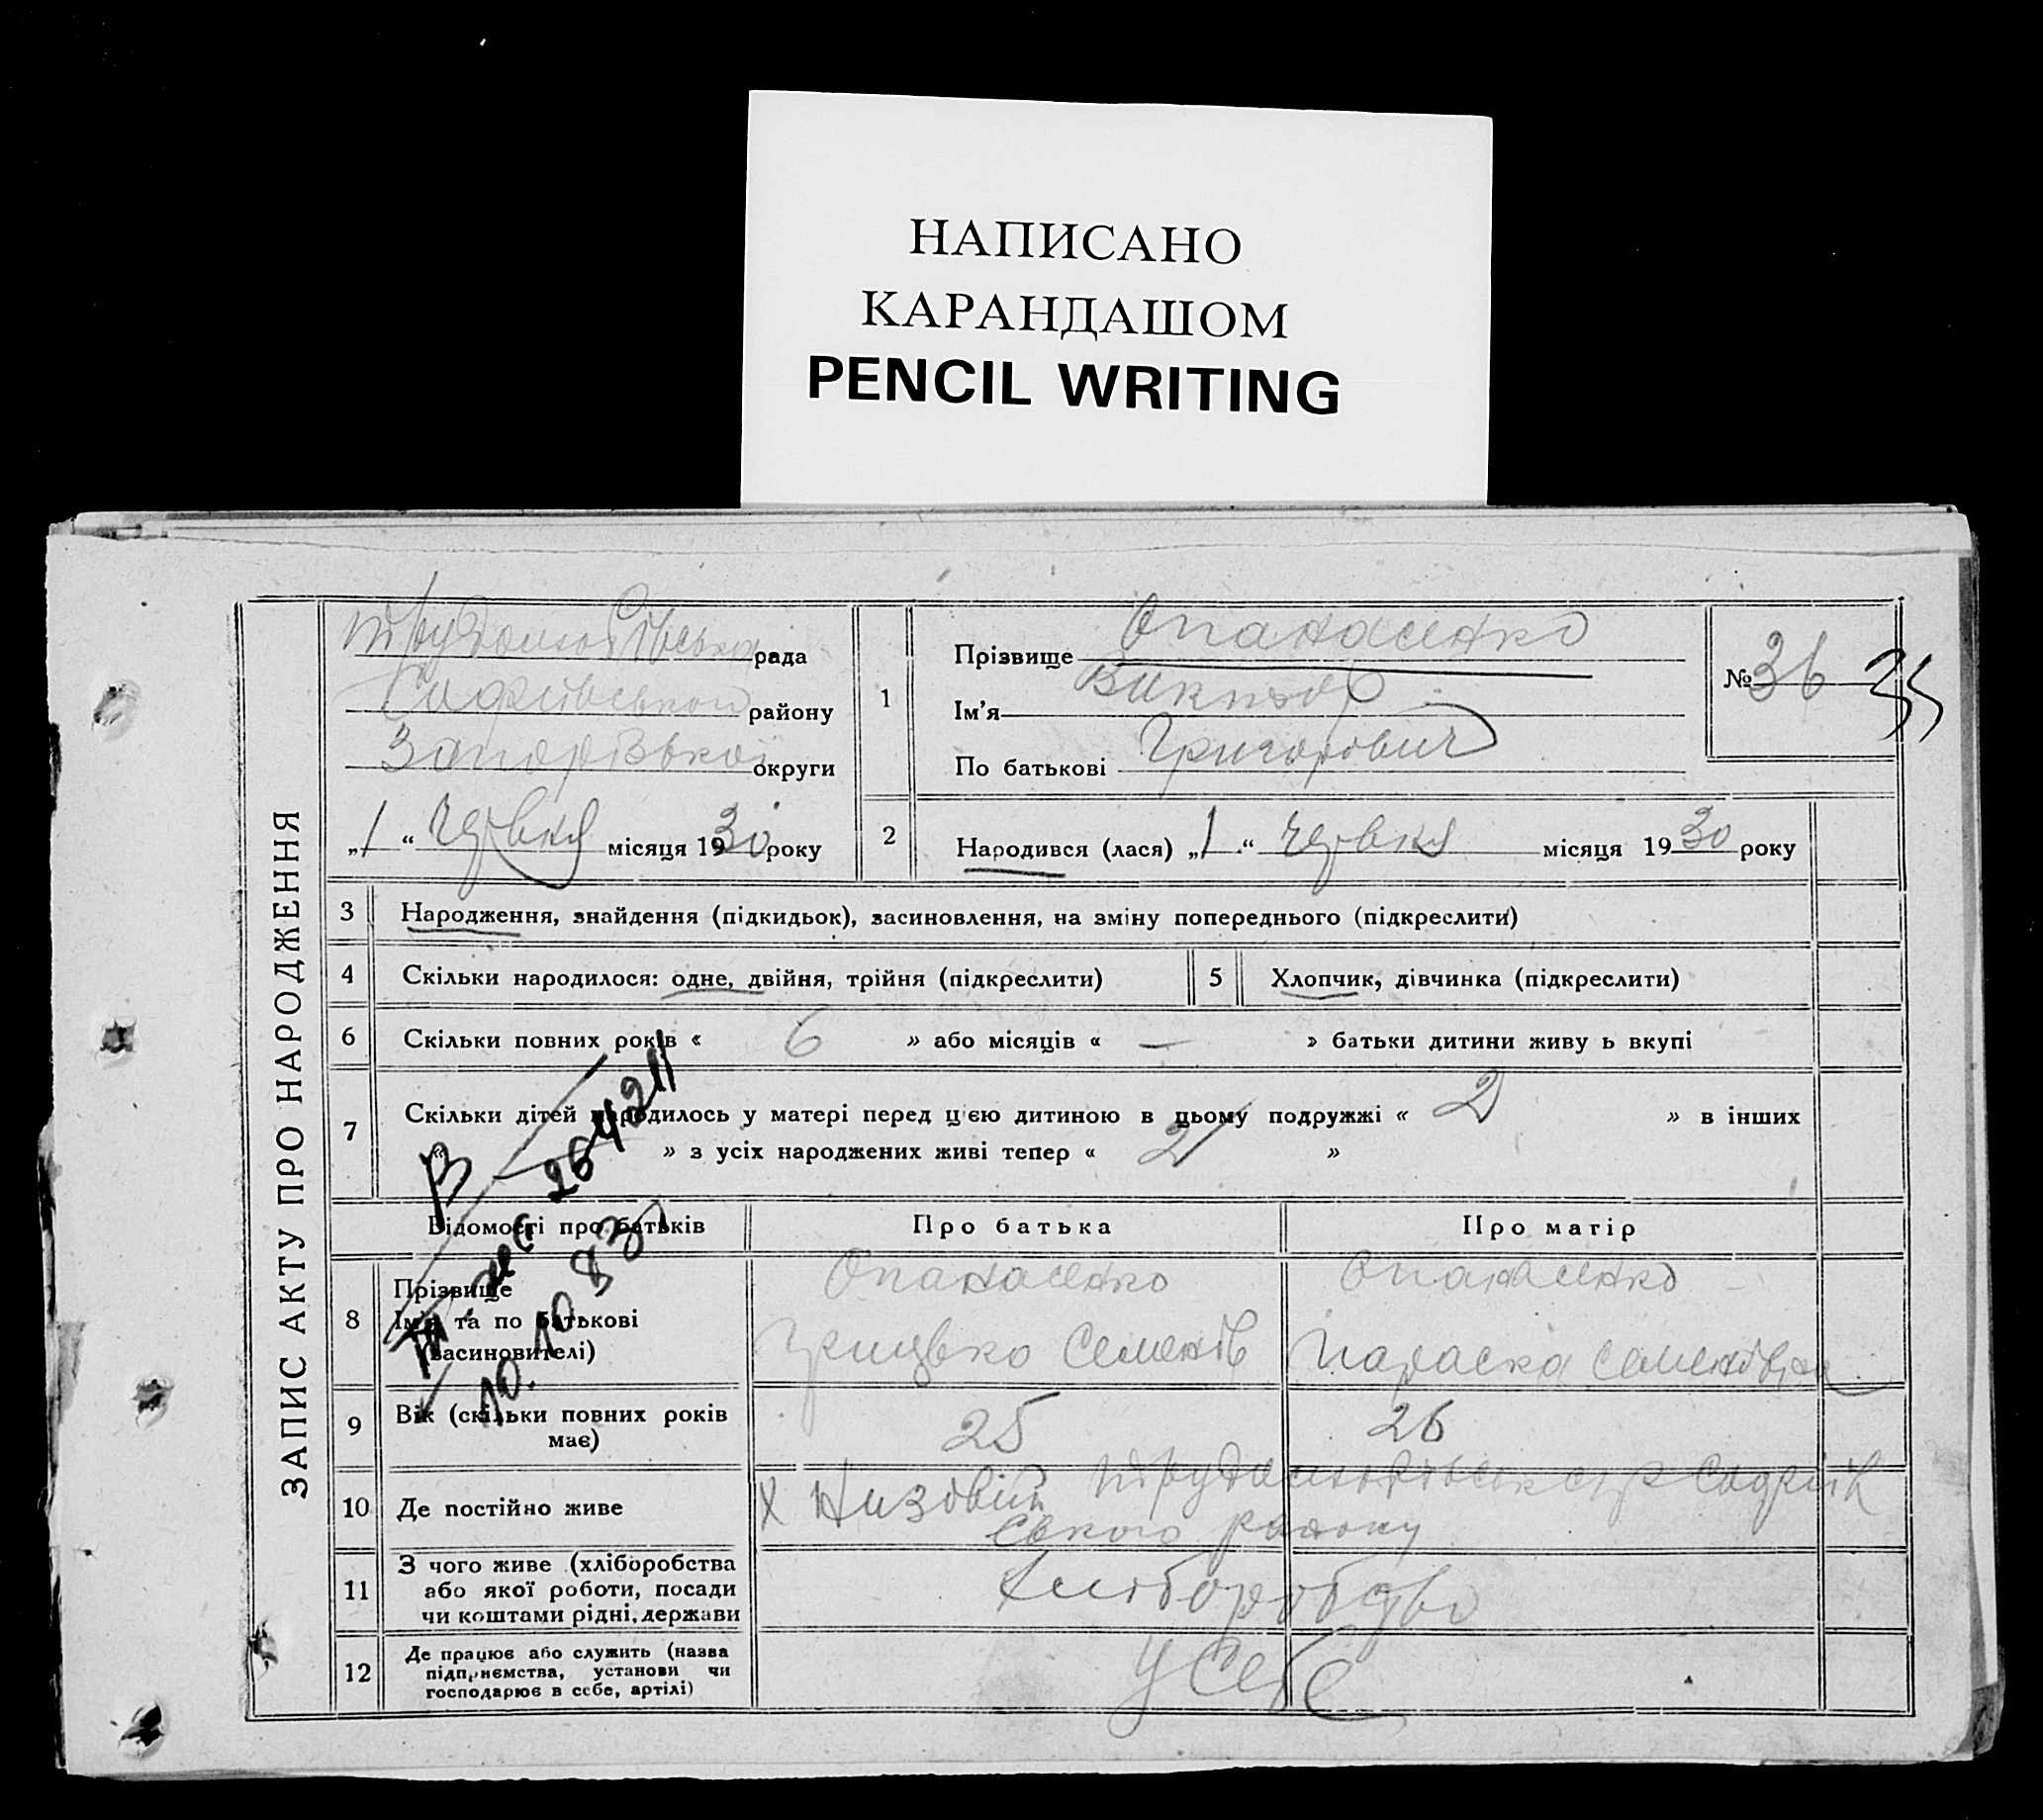 НАПИСАНО
КАРАНДАШОМ
PENCIL WRITING
ЗАПИС АКТУ ПРО НАРОДЖЕННЯ
рада
Софіївського району
Запорізької округи
„1“ червня місяця 1930 року
1
Прізвище Опанасенко
Ім’я Виктор
По батькові Григорович
№ 36
35
2 Народився (лася) „1“ червня місяця 1930 року
3 Народження, знайдення (підкидьок), засиновлення, на зміну попереднього (підкреслити)
4 Скільки народилося: одне, двійня, трійня (підкреслити)
5 Хлопчик, дівчинка (підкреслити)
6 Скільки повних років « 6 » або місяців « — » батьки дитини живу ь вкупі
7 Скільки дітей народилось у матері перед цією дитиною в цьому подружжі « 2 » в інших
« » з усіх народжених живі тепер « 2 »
Відомості про батьків Про батька Про матір
8 Прізвище Опанасенко Опанасенко
Ім’я та по батькові Грицько Семенів Параска Семенівна
(засиновителі)
9 Вік (скільки повних років має) 25 26
10 Де постійно живе х Низовий
ського району
11 З чого живе (хліборобства
або якої роботи, посади
чи коштами рідні, держави
Хліборобство
12 Де працює або служить (назва
підприємства, установи чи
господарює в себе, артілі)
У Себе
264211
10.10 83